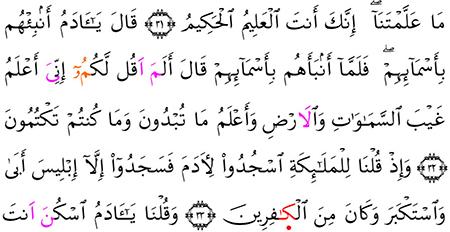 مَا عَلَّمْتَنَآ ۖ إِنَّكَ أَنتَ ٱلْعَلِيمُ ٱلْحَكِيمُ ﴿٣١﴾ قَالَ يَـٰٓـَٔادَمُ أَنۢبِئْهُم
بِأَسْمَآئِهِمْ ۖ فَلَمَّآ أَنۢبَأَهُم بِأَسْمَآئِهِمْ قَالَ أَلَمَ اَقُل لَّكُمُۥٓ إِنِّىَ أَعْلَمُ
غَيْبَ ٱلسَّمَـٰوَٰتِ وَٱلَارْضِ وَأَعْلَمُ مَا تُبْدُونَ وَمَا كُنتُمْ تَكْتُمُونَ
﴿٣٢﴾ وَإِذْ قُلْنَا لِلْمَلَـٰٓئِكَةِ ٱسْجُدُوا۟ لِأَدَمَ فَسَجَدُوٓا۟ إِلَّآ إِبْلِيسَ أَبَىٰ
وَٱسْتَكْبَرَ وَكَانَ مِنَ ٱلْكَـٰفِرِينَ ﴿٣٣﴾ وَقُلْنَا يَـٰٓـَٔادَمُ ٱسْكُنَ اَنتَ